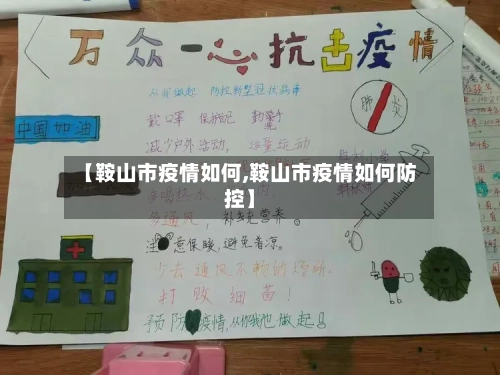 万众一心抗击疫情
从我做起 防控新型冠状病毒
戴口罩 保持距 勤洗手
减少户外活动, 适量运动
肺炎
中国加油
【鞍山市疫情如何,鞍山市疫情如何防
控】
多喝热水
多通风, 补充营养。
注意保暖,避免着凉。
少去通风不畅的场所。
打败细菌!
预防疫情,从你我他做起!